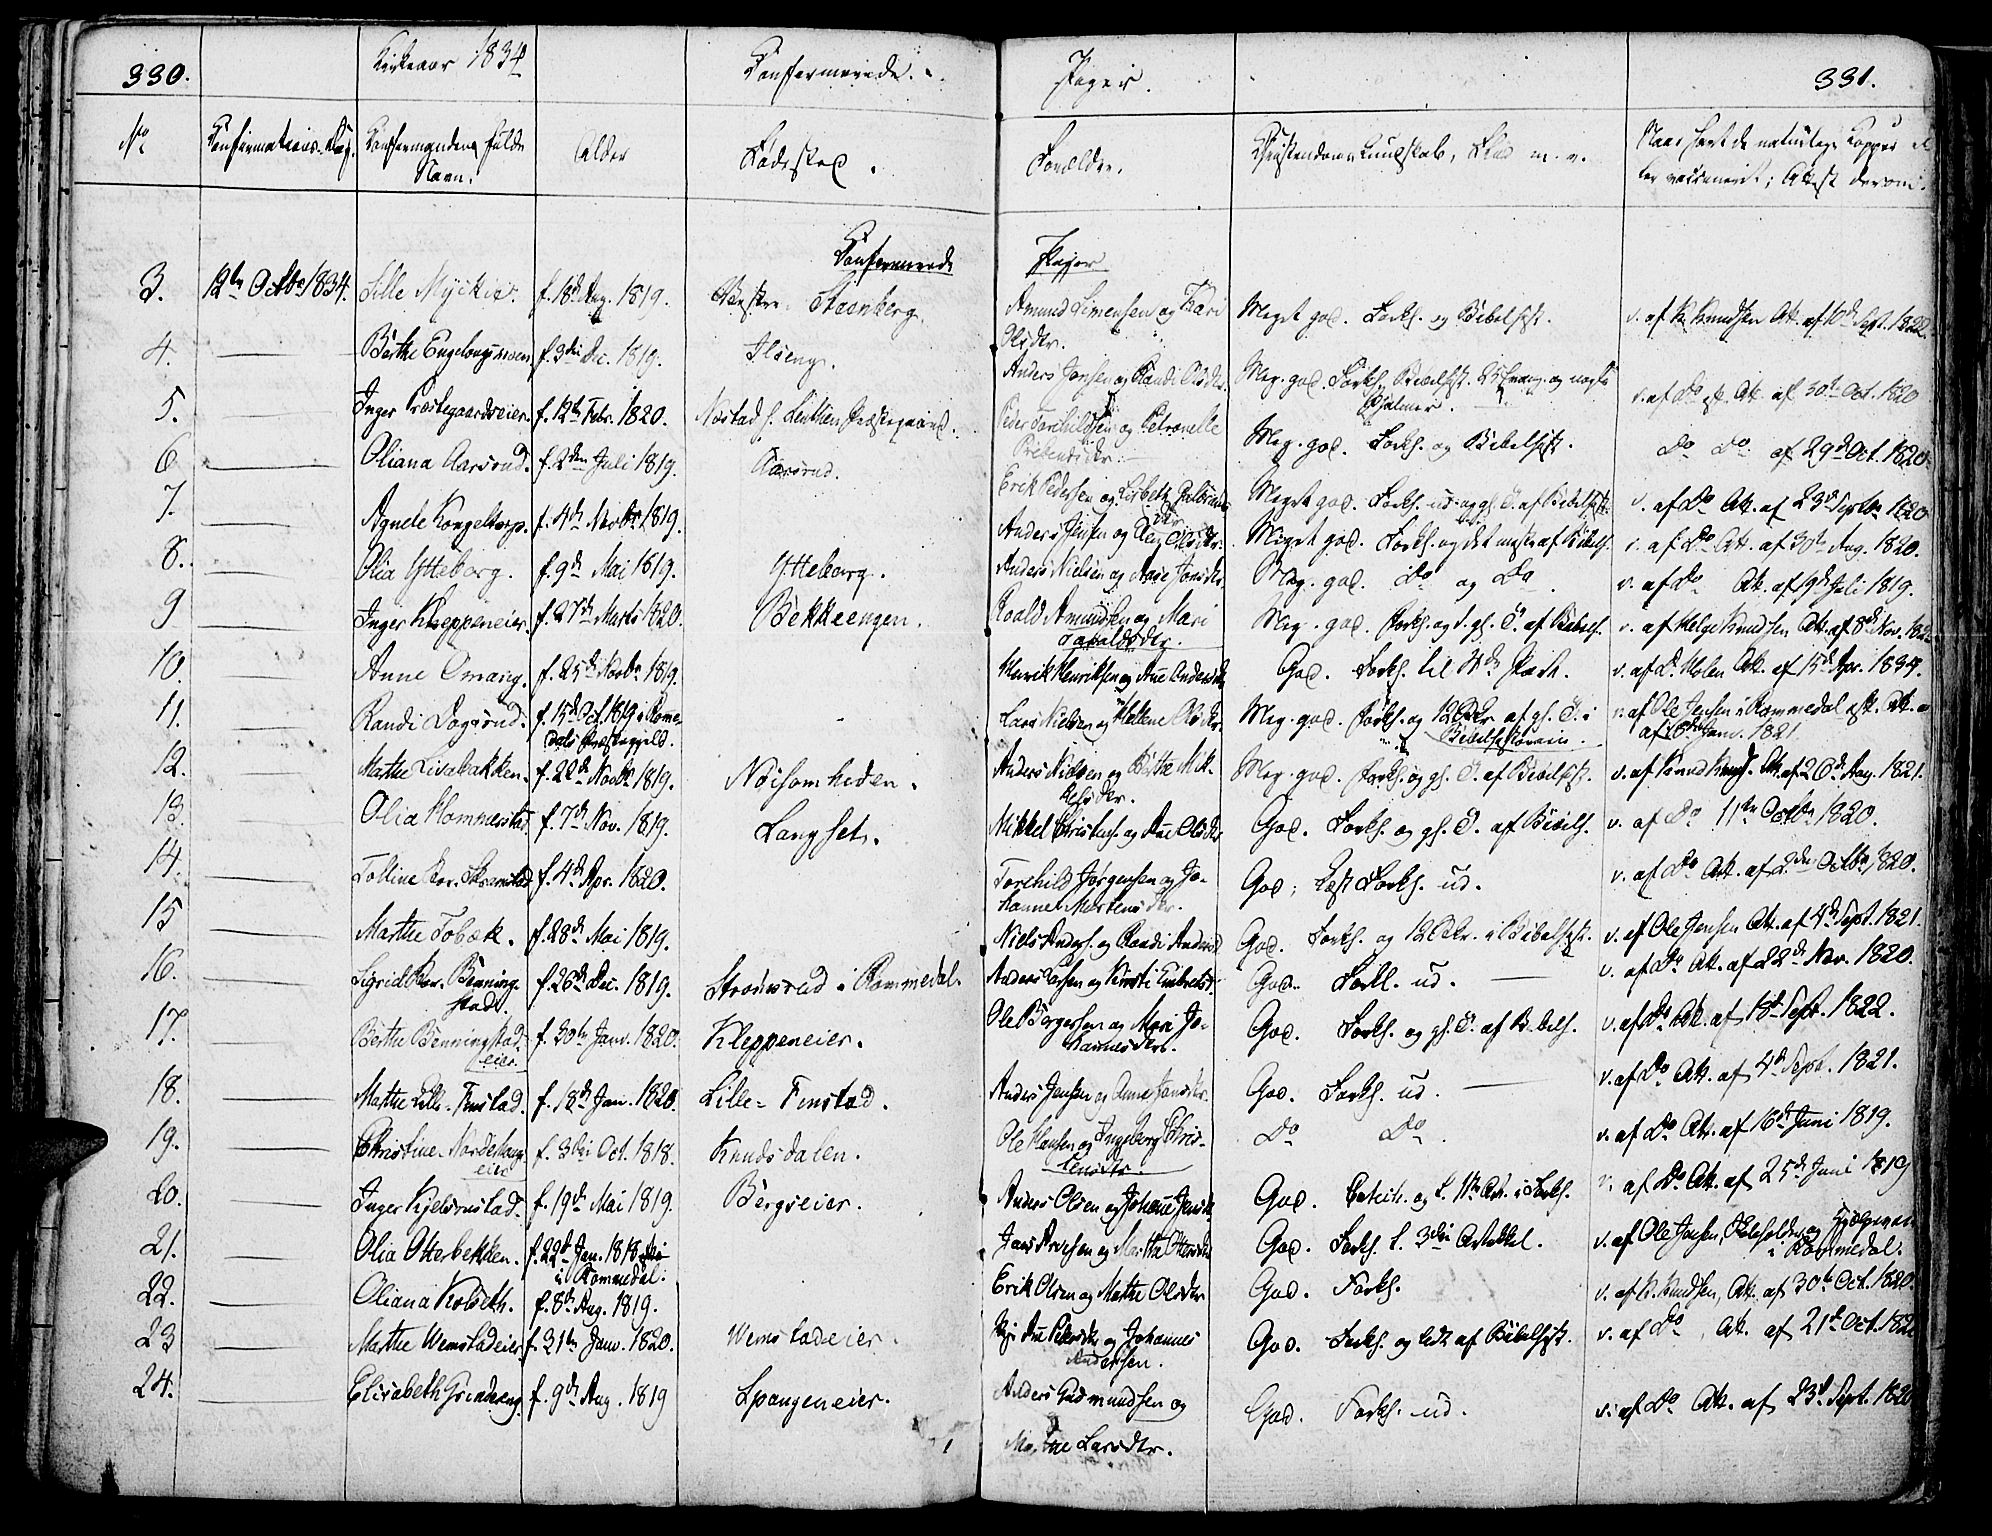 330. Kirkeaar 1834 Confirmerede Piger. 331.
No Confirmations-Dag. Confirmandens fulde Alder Fødested. Forældre. Christendoms Kundskab, Flid m. v. Naar havt de naturlige Kopper el
Navn. ler vaccineret; Attest derom.
Confirmerede Piger
3. 12te Octbr 1834. Lille Myckeie. f. 18de Aug. 1819. Steenberg. Amund Simensen og Kari Meget god. Forkl. og Bibelhist. v. af K. Knudsen Att. af 10de Sept. 1822.
Olsdtr.
4. Berthe f. 3die Dec. 1819. Ilseng. Anders Jensen og Randi Olsdtr. Meg. god. Forkl. Bibelhist. og nogle v. af Do Att. af 30te Oct. 1820
Psalmer.
5. Inger Præstegaardseier. f. 12te Febr. 1820. Præstegaard. Peder Torchildsen og Petronelle Meg. god. Forkl. og Bibelhist. Do Do af 29de Oct. 1820.
6 Oliana Aarsrud. f. 2den Juli 1819. Aarsrud. Erik Pedersen og Lisbeth Meget god. Forkl. ud og gl. T. af Bibelhist. v. af Do Att. af 23de Septbr 1820
7. Agnete Kongeltorp. f. 4de Novbr 1819. Anders Jensen og Olsdtr. Meget god. Forkl. og det meste af Bibelh. v. af Do Att. af 30te Aug. 1820.
8. Olia Ytteborg. f. 9de Mai 1819. Ytteborg. Anders Nielsen og Aase Jonsdtr. Meg. god. Do og Do v. af Do Att. af 19de Juli 1819.
9 Inger Kleppeneier. f. 27de Marts 1820. Bekkeengen. Roald Amundsen og Mari Meg. god. Forkl. og d. gl. T. af Bibelh. v. af Helge Knudsen Att. af 8de Nov.
10. Anne Omang. f. 25de Novbr 1819. Henrik Henriksen og Ane Andersdtr God. Forkl. til 4de Part. v. af D. Holen Att. af 15de Apr. 1834.
11. Randi Dogsrud. f. 15de Oct. 1819 i Romme- Lars Nielsen og Helene Olsdtr. Meg. god. Forkl. og 12 af gl. T. i v. af Ole Jensen i Rommedal Att.
dals Præstegjeld. Bibelhistorien. af 16de Janv. 1821.
12. Marthe Lisabakken. f. 22de Novbr 1819. Nøisomheden. Anders Nielsen og Berthe Mik- Meg. god. Forkl. og gl. T. af Bibelhist. v. af Knud Knuds. Att. af 26de Aug. 1821.
kelsdtr.
13. Olia Hommerstad f. 7de Nov. 1819. Langset. Mikkel Christens. og Ane Olsdtr God. Forkl. og gl. T. af Bibelh. v. af Do 11te Octbr 1820.
14. Skramstad f. 4de Apr. 1820. Torchild Jørgensen og Jo- God; Læst Forkl. ud. v. af Do Att. af 2den Octbr 1820.
hanne Mortensdtr.
15 Marthe Tobæk. f. 28de Mai 1819. Niels Anders. og Randi Andersd God. Forkl. og 12 i Bibelhist. v. af Ole Jensen Att. af 4de Sept. 1821.
16. Sigrid Benning- f. 26de Dec. 1819. Strømsrud i Rommedal. Anders Larsen og Kirsti Embretsd. God. Forkl. ud. v. af Do Att. af 22de Nov. 1820.
stad.
17. Berthe Benningstad- f. 30te Janv. 1820. Kleppeneier. Ole Børgersen og Mari Jo- God. Forkl. og gl. T. af Bibelh. v. af Do Att. af 18de Sept. 1822.
eier. hannesdtr.
18. Marthe Lille-Finstad. f. 18de Jan. 1820. Lille-Finstad. Anders Jensen og Anne Jensdtr. God. Forkl. ud v. af Do Att. af 4de Septb. 1821.
19. Christine f. 3die Oct. 1818. Knudsdalen. Ole Hansen og Ingeborg Chris- Do Do v. af Do Att. af 16de Juni 1819.
eier tensdtr.
20. Inger Kjelsrustad. f. 19de Mai 1819. Bergseier. Anders Olsen og Johane Jensdtr God. Catech. og t. 11te Art. i Forkl. v. af Do Att. af 25de Juni 1819
21. Olia Otterbekken. f. 22de Jan. 1818 Jens Arnesen og Martha Ottersdtr God. Forkl. t. 3die Artikkel. v. af Ole Jensen, Skoleholder og
i Rommedal. i Rommedal.
22. Oliana Kolseth. f. 8de Aug. 1819. Erik Olsen og Marthe Olsdtr God. Forkl. v. af K. Knudsen, Att. af 30te Oct. 1820.
23 Marthe Wemstadeier f. 31te Janv. 1820. Wemstadeier. Pige Ane Pedersdtr og Johannes God. Forkl. og lidt af Bibelhist. v. af Do, Att. af 21de Oct.
Andersen.
24. Elisabeth Grindeng f. 9de Aug. 1819 Spangeneier. Anders Gudmundsen og God. Forkl. ud. v. af Do Att. af 23de Sept. 1820
Marthe Larsdtr.